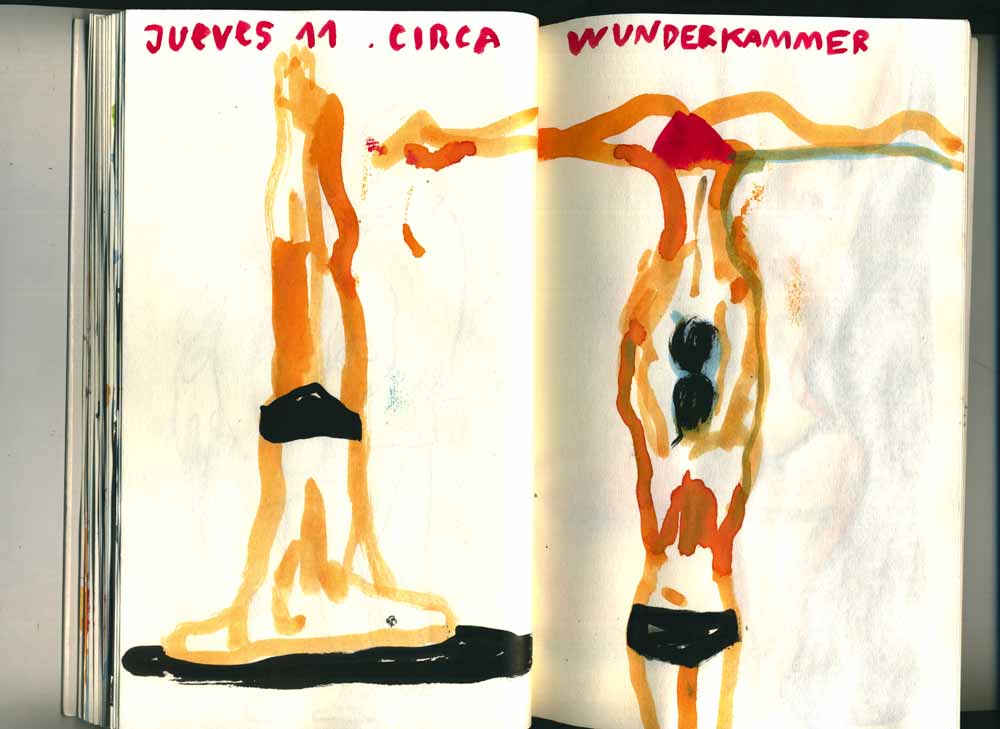 JUEVES 11 . CIRCA WUNDERKAMMER